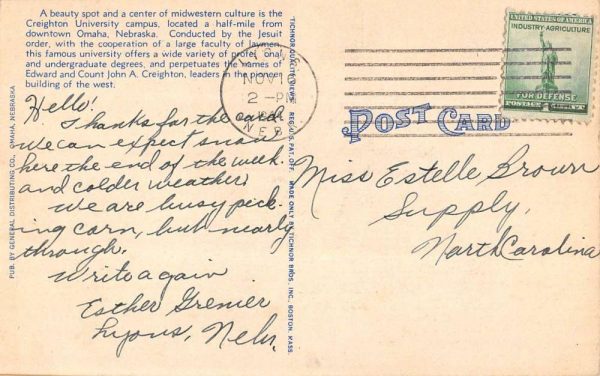 A beauty spot and a center of midwestern culture is the
Creighton University campus, located a half-mile from
downtown Omaha, Nebraska. Conducted by the Jesuit
order, with the cooperation of a large faculty of laymen,
this famous university offers a wide variety of profes ional
and undergraduate degrees, and perpetuates the names of
Edward and Count John A. Creighton, leaders in the pioneer
building of the west.
Hello!
Thanks for the card
we can expect snow
here the end of the week.
and colder weather.
We are busy pick-
ing corn, but nearly
through.
Write again
Esther Grenier
Lyons, Nebr.
PUB. BY GENERAL DISTRIBUTING CO., OMAHA, NEBRASKA
TICHNOR QUALITY VIEWS REG. U. S. PAT. OFF. MADE ONLY BY TICHNOR BROS., INC., BOSTON, MASS.
NOV 10
2 - P
NEBR
POST CARD
UNITED STATES OF AMERICA
INDUSTRY AGRICULTURE
FOR DEFENSE
POSTAGE 1¢
Miss Estelle Brown
Supply,
North Carolina